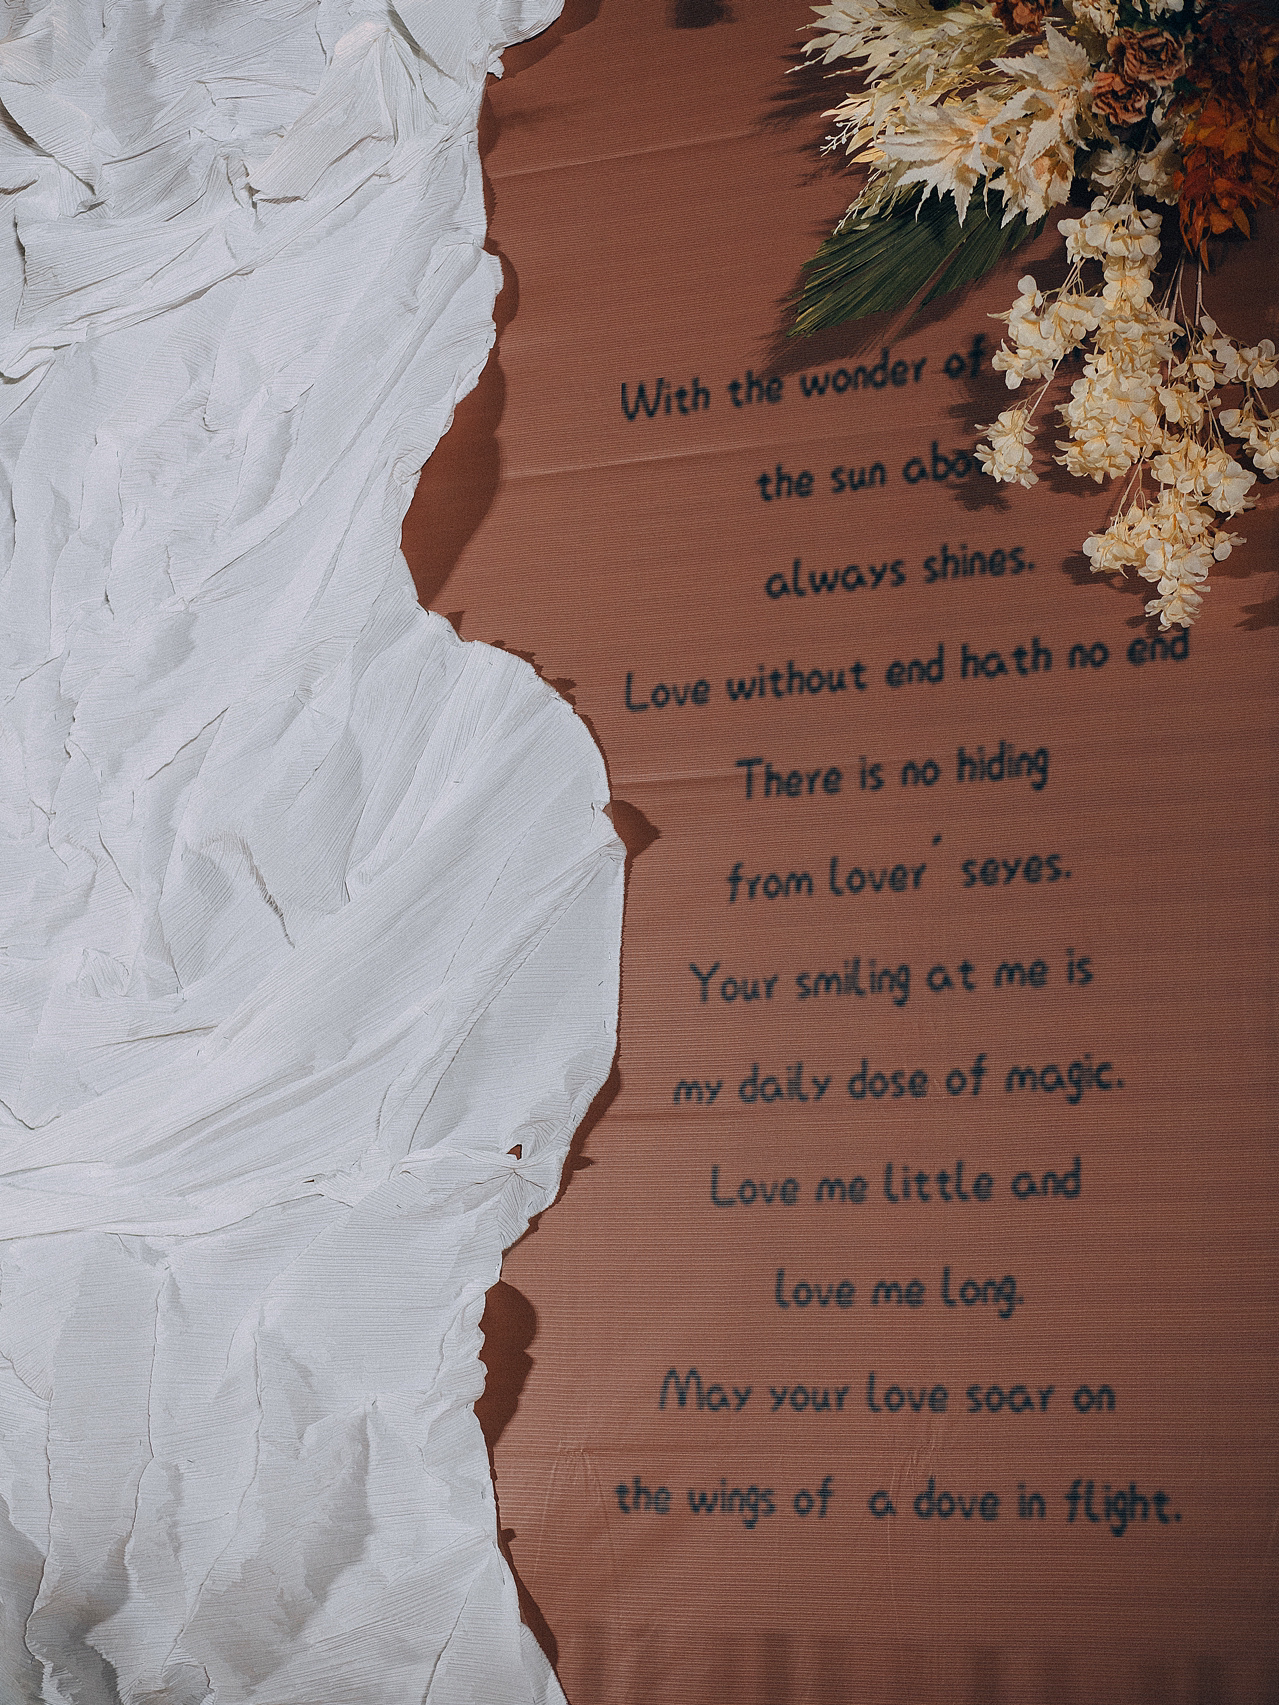 With the wonder of
the sun
always shines.
Love without end hath no end
There is no hiding
from lover ' seyes.
Your smiling at me is
my daily dose of magic.
Love me little and
love me long.
May your love soar on
the wings of a dove in flight.